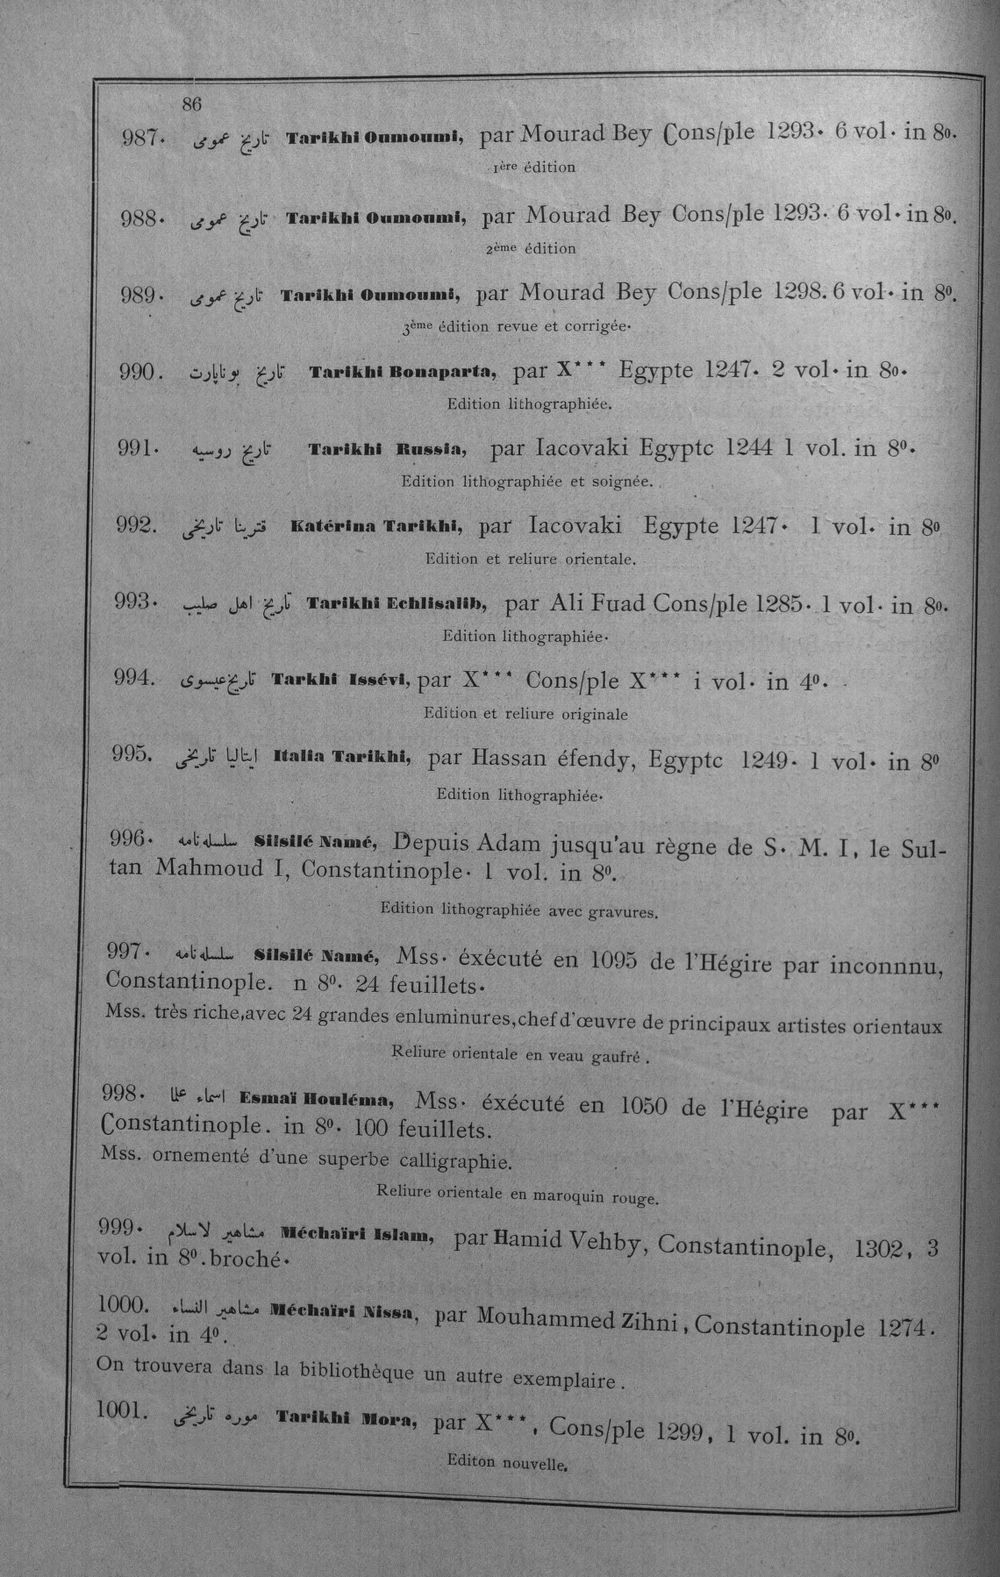 86
987. تاريخ عمومى Tarikhi Oumoumi, par Mourad Bey Cons/ple 1293. 6 vol. in 8o.
1ère édition
988. تاريخ عمومى Tarikhi Oumoumi, par Mourad Bey Cons/ple 1293. 6 vol. in 8o.
2ème édition
989. تاريخ عمومى Tarikhi Oumoumi, par Mourad Bey Cons/ple 1298. 6 vol. in 8º.
3ème édition revue et corrigée.
990. تاريخ بوناپارت Tarikhi Bonaparta, par X*** Egypte 1247. 2 vol. in 8o.
Edition lithographiée.
991. تاريخ روسيه Tarikhi Russia, par Iacovaki Egyptc 1244 1 vol. in 8º.
Edition lithographiée et soignée.
992. قترينا تاريخى Katérina Tarikhi, par Iacovaki Egypte 1247. 1 vol. in 8º
Edition et reliure orientale.
993. تاريخ اهل صليب Tarikhi Echlisalib, par Ali Fuad Cons/ple 1285. 1 vol. in 8o.
Edition lithographiée.
994. تاريخ عيسوى Tarkhi Issévi, par X*** Cons/ple X*** i vol. in 4º.
Edition et reliure originale
995. ايتاليا تاريخى Italia Tarikhi, par Hassan éfendy, Egyptc 1249. 1 vol. in 8º
Edition lithographiée.
996. سلسله نامه Silsilé Namé, Depuis Adam jusqu'au règne de S. M. I, le Sul-
tan Mahmoud I, Constantinople. 1 vol. in 8º.
Edition lithographiée avec gravures.
997. سلسله نامه Silsilé Namé, Mss. éxécuté en 1095 de l'Hégire par inconnnu,
Constantinople. n 8º. 24 feuillets.
Mss. très riche, avec 24 grandes enluminures, chef d'œuvre de principaux artistes orientaux
Reliure orientale en veau gaufré .
998. اسماء علما Esmaï Houléma, Mss. éxécuté en 1050 de l'Hégire par X***
Constantinople. in 8º. 100 feuillets.
Mss. ornementé d'une superbe calligraphie.
Reliure orientale en maroquin rouge.
999. مشاهير لاسلام Méchaïri Islam, par Hamid Vehby, Constantinople, 1302, 3
vol. in 8º. broché.
1000. مشاهير النساء Méchaïri Nissa, par Mouhammed Zihni, Constantinople 1274.
2 vol. in 4º.
On trouvera dans la bibliothèque un autre exemplaire.
1001. موره تاريخى Tarikhi Mora, par X***, Cons/ple 1299, 1 vol. in 8o.
Editon nouvelle.